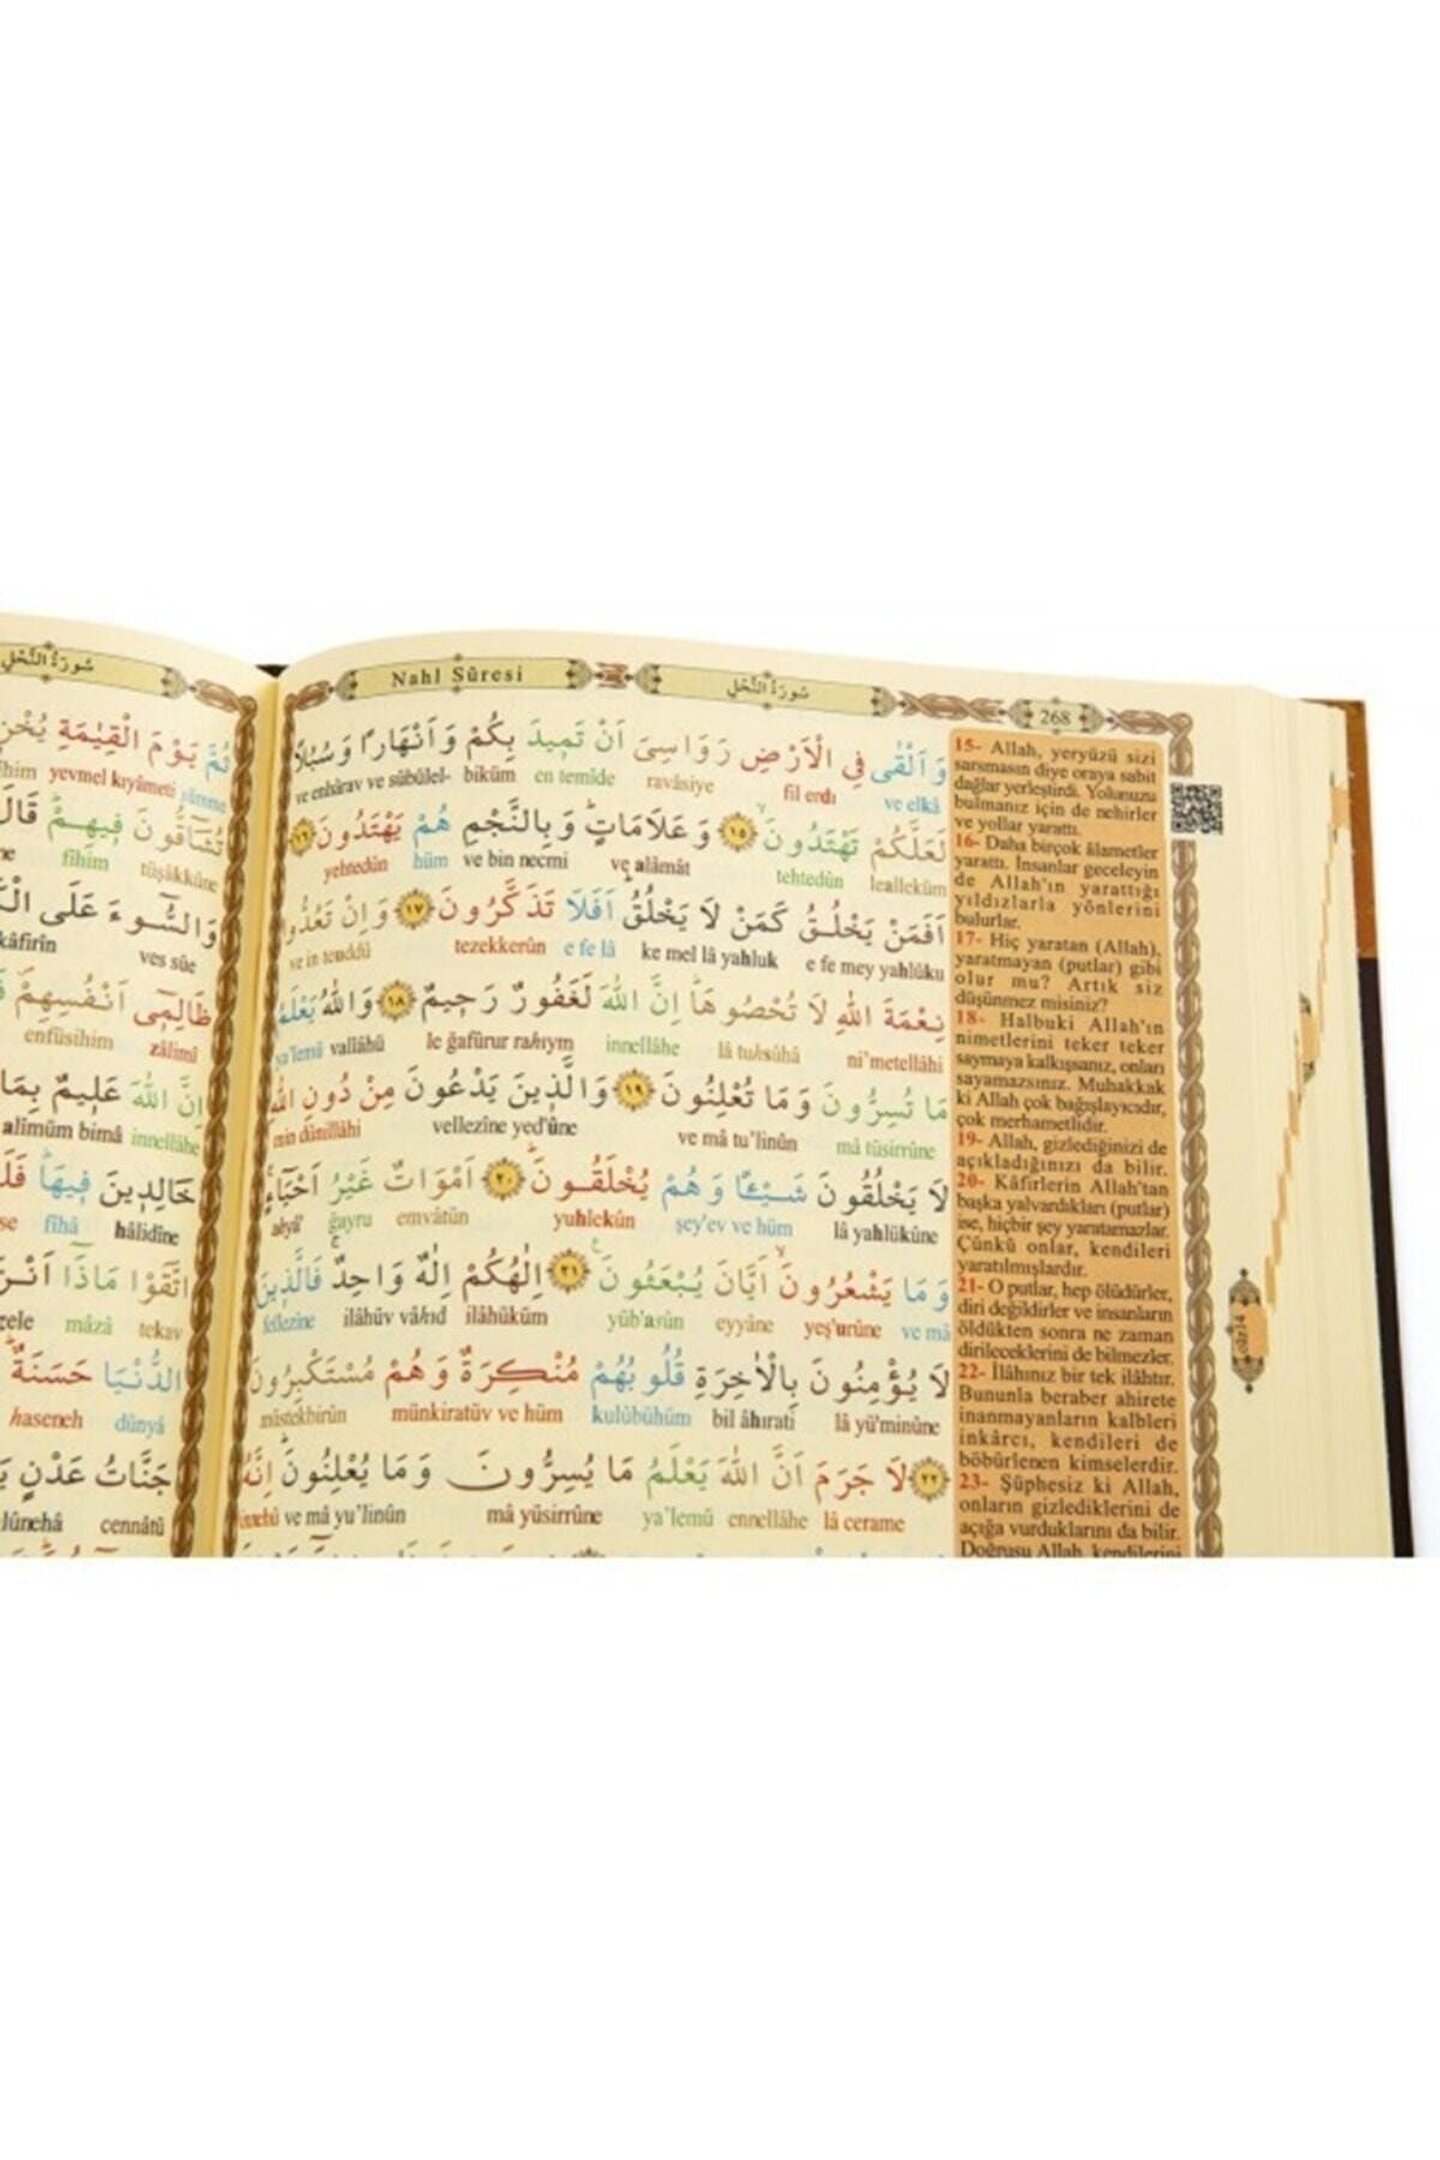 سُورَةُ النَّحْلِ
ثُمَّ يَوْمَ الْقِيٰمَةِ
yevmel kıyâmeti sümme
تُشَٓاقُّونَ فٖيهِمْۜ قَالَ
fîhim tüşâkkûne
وَالسُّٓوءَ عَلَى
kâfirîn ves sûe
ظَالِمٖٓي اَنْفُسِهِمْ
enfüsihim zâlimî
اِنَّ اللّٰهَ عَلٖيمٌ بِمَا
alîmüm bimâ innellâhe
خَالِدٖينَ فٖيهَاۜ
fîhâ hâlidîne
اتَّقَوْا مَاذَٓا
mâzâ tekav
الدُّنْيَا حَسَنَةٌۜ
haseneh dünyâ
جَنَّاتُ عَدْنٍ
cennâtü
Nahl Sûresi سُورَةُ النَّحْلِ 268
وَاَلْقٰى فِي الْاَرْضِ رَوَاسِيَ اَنْ تَمٖيدَ بِكُمْ وَاَنْهَارًا وَسُبُلًا
ve enhârav ve sübülel- biküm en temîde ravâsiye fil erdı ve elkâ
لَعَلَّكُمْ تَهْتَدُونَۙ ﴿١٥﴾ وَعَلَامَاتٍۜ وَبِالنَّجْمِ هُمْ يَهْتَدُونَ ﴿١٦﴾
yehtedûn hüm ve bin necmi ve alâmât tehtedûn lealleküm
اَفَمَنْ يَخْلُقُ كَمَنْ لَا يَخْلُقُۜ اَفَلَا تَذَكَّرُونَ ﴿١٧﴾ وَاِنْ تَعُدُّوا
ve in teuddû tezekkerûn e fe lâ ke mel lâ yahluk e fe mey yahlüku
نِعْمَةَ اللّٰهِ لَا تُحْصُوهَاۜ اِنَّ اللّٰهَ لَغَفُورٌ رَحٖيمٌ ﴿١٨﴾ وَاللّٰهُ يَعْلَمُ
ya'lemü vallâhü le ğafûrur rahıym innellâhe lâ tuhsûhâ ni'metellâhi
مَا تُسِرُّونَ وَمَا تُعْلِنُونَ ﴿١٩﴾ وَالَّذٖينَ يَدْعُونَ مِنْ دُونِ اللّٰهِ
min dûnillâhi vellezîne yed'ûne ve mâ tu'linûn mâ tüsirrûne
لَا يَخْلُقُونَ شَيْـًٔا وَهُمْ يُخْلَقُونَۜ ﴿٢٠﴾ اَمْوَاتٌ غَيْرُ اَحْيَٓاءٍۚ
ahyâ' ğayru emvâtün yuhlekûn şey'ev ve hüm lâ yahlükûne
وَمَا يَشْعُرُونَۙ اَيَّانَ يُبْعَثُونَ ﴿٢١﴾ اِلٰهُكُمْ اِلٰهٌ وَاحِدٌۚ فَالَّذٖينَ
fellezîne ilâhüv vâhıd ilâhüküm yüb'asûn eyyâne yeş'urûne ve mâ
لَا يُؤْمِنُونَ بِالْاٰخِرَةِ قُلُوبُهُمْ مُنْكِرَةٌ وَهُمْ مُسْتَكْبِرُونَ
müstekbirûn münkiratüv ve hüm kulûbühüm bil âhırati lâ yü'minûne
﴿٢٢﴾ لَا جَرَمَ اَنَّ اللّٰهَ يَعْلَمُ مَا يُسِرُّونَ وَمَا يُعْلِنُونَۜ اِنَّهُ
innehû ve mâ yu'linûn mâ yüsirrûne ya'lemü ennellâhe lâ cerame
15- Allah, yeryüzü sizi
sarsmasın diye oraya sabit
dağlar yerleştirdi. Yolunuzu
bulmanız için de nehirler
ve yollar yarattı.
16- Daha birçok âlametler
yarattı. İnsanlar geceleyin
de Allah'ın yarattığı
yıldızlarla yönlerini
bulurlar.
17- Hiç yaratan (Allah),
yaratmayan (putlar) gibi
olur mu? Artık siz
düşünmez misiniz?
18- Halbuki Allah'ın
nimetlerini teker teker
saymaya kalkışsanız, onları
sayamazsınız. Muhakkak
ki Allah çok bağışlayıcıdır,
çok merhametlidir.
19- Allah, gizlediğinizi de
açıkladığınızı da bilir.
20- Kâfirlerin Allah'tan
başka yalvardıkları (putlar)
ise, hiçbir şey yaratamazlar.
Çünkü onlar, kendileri
yaratılmışlardır.
21- O putlar, hep ölüdürler,
diri değildirler ve insanların
öldükten sonra ne zaman
dirileceklerini de bilmezler.
22- İlâhınız bir tek ilâhtır.
Bununla beraber ahirete
inanmayanların kalbleri
inkârcı, kendileri de
böbürlenen kimselerdir.
23- Şüphesiz ki Allah,
onların gizlediklerini de
açığa vurduklarını da bilir.
Doğrusu Allah, kendilerini
cüz14